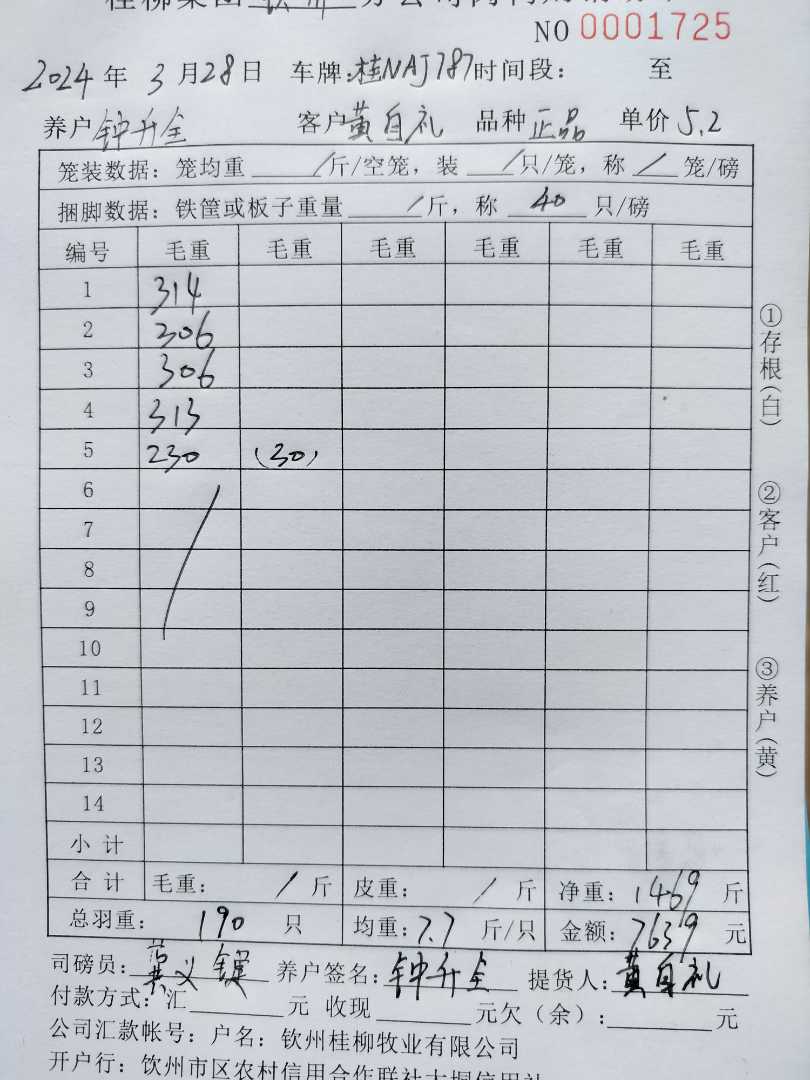 桂柳集团 钦州 分公司
NO 0001725
2024 年 3 月 28 日 车牌:桂NAJ787 时间段: 至
养户 钟升全 客户 黄自礼 品种 正品 单价 5.2
笼装数据: 笼均重 / 斤/空笼, 装 / 只/笼, 称 / 笼/磅
捆脚数据: 铁筐或板子重量 / 斤, 称 40 只/磅
编号 毛重 毛重 毛重 毛重 毛重 毛重
1 314
2 306
3 306
4 313
5 230 (30)
6
7
8
9
10
11
12
13
14
小计
合计 毛重: / 斤 皮重: / 斤 净重: 1469 斤
总羽重: 190 只 均重: 7.7 斤/只 金额: 7639 元
司磅员: 义 养户签名: 钟升全 提货人: 黄自礼
付款方式: 汇 元 收现 元欠(余): 元
公司汇款帐号: 户名: 钦州桂柳牧业有限公司
开户行: 饮州市区农村信用合作联社大垌信用社
①存根(白)
②客户(红)
③养户(黄)